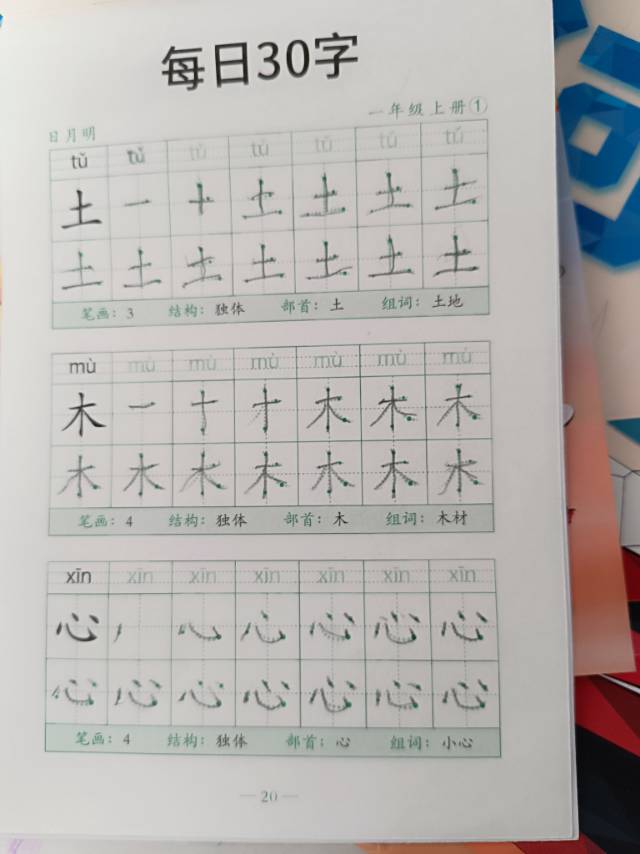 每日30字
一年级上册①
日月明
tǔ tǔ tǔ tǔ tǔ tǔ tǔ
土 一 十 土 土 土 土
土 土 土 土 土 土 土
笔画：3 结构：独体 部首：土 组词：土地
mù mù mù mù mù mù mù
木 一 十 才 木 木 木
木 木 木 木 木 木 木
笔画：4 结构：独体 部首：木 组词：木材
xīn xīn xīn xīn xīn xīn xīn
心 心 心 心 心
心 心 心 心 心 心 心
笔画：4 结构：独体 部首：心 组词：小心
— 20 —